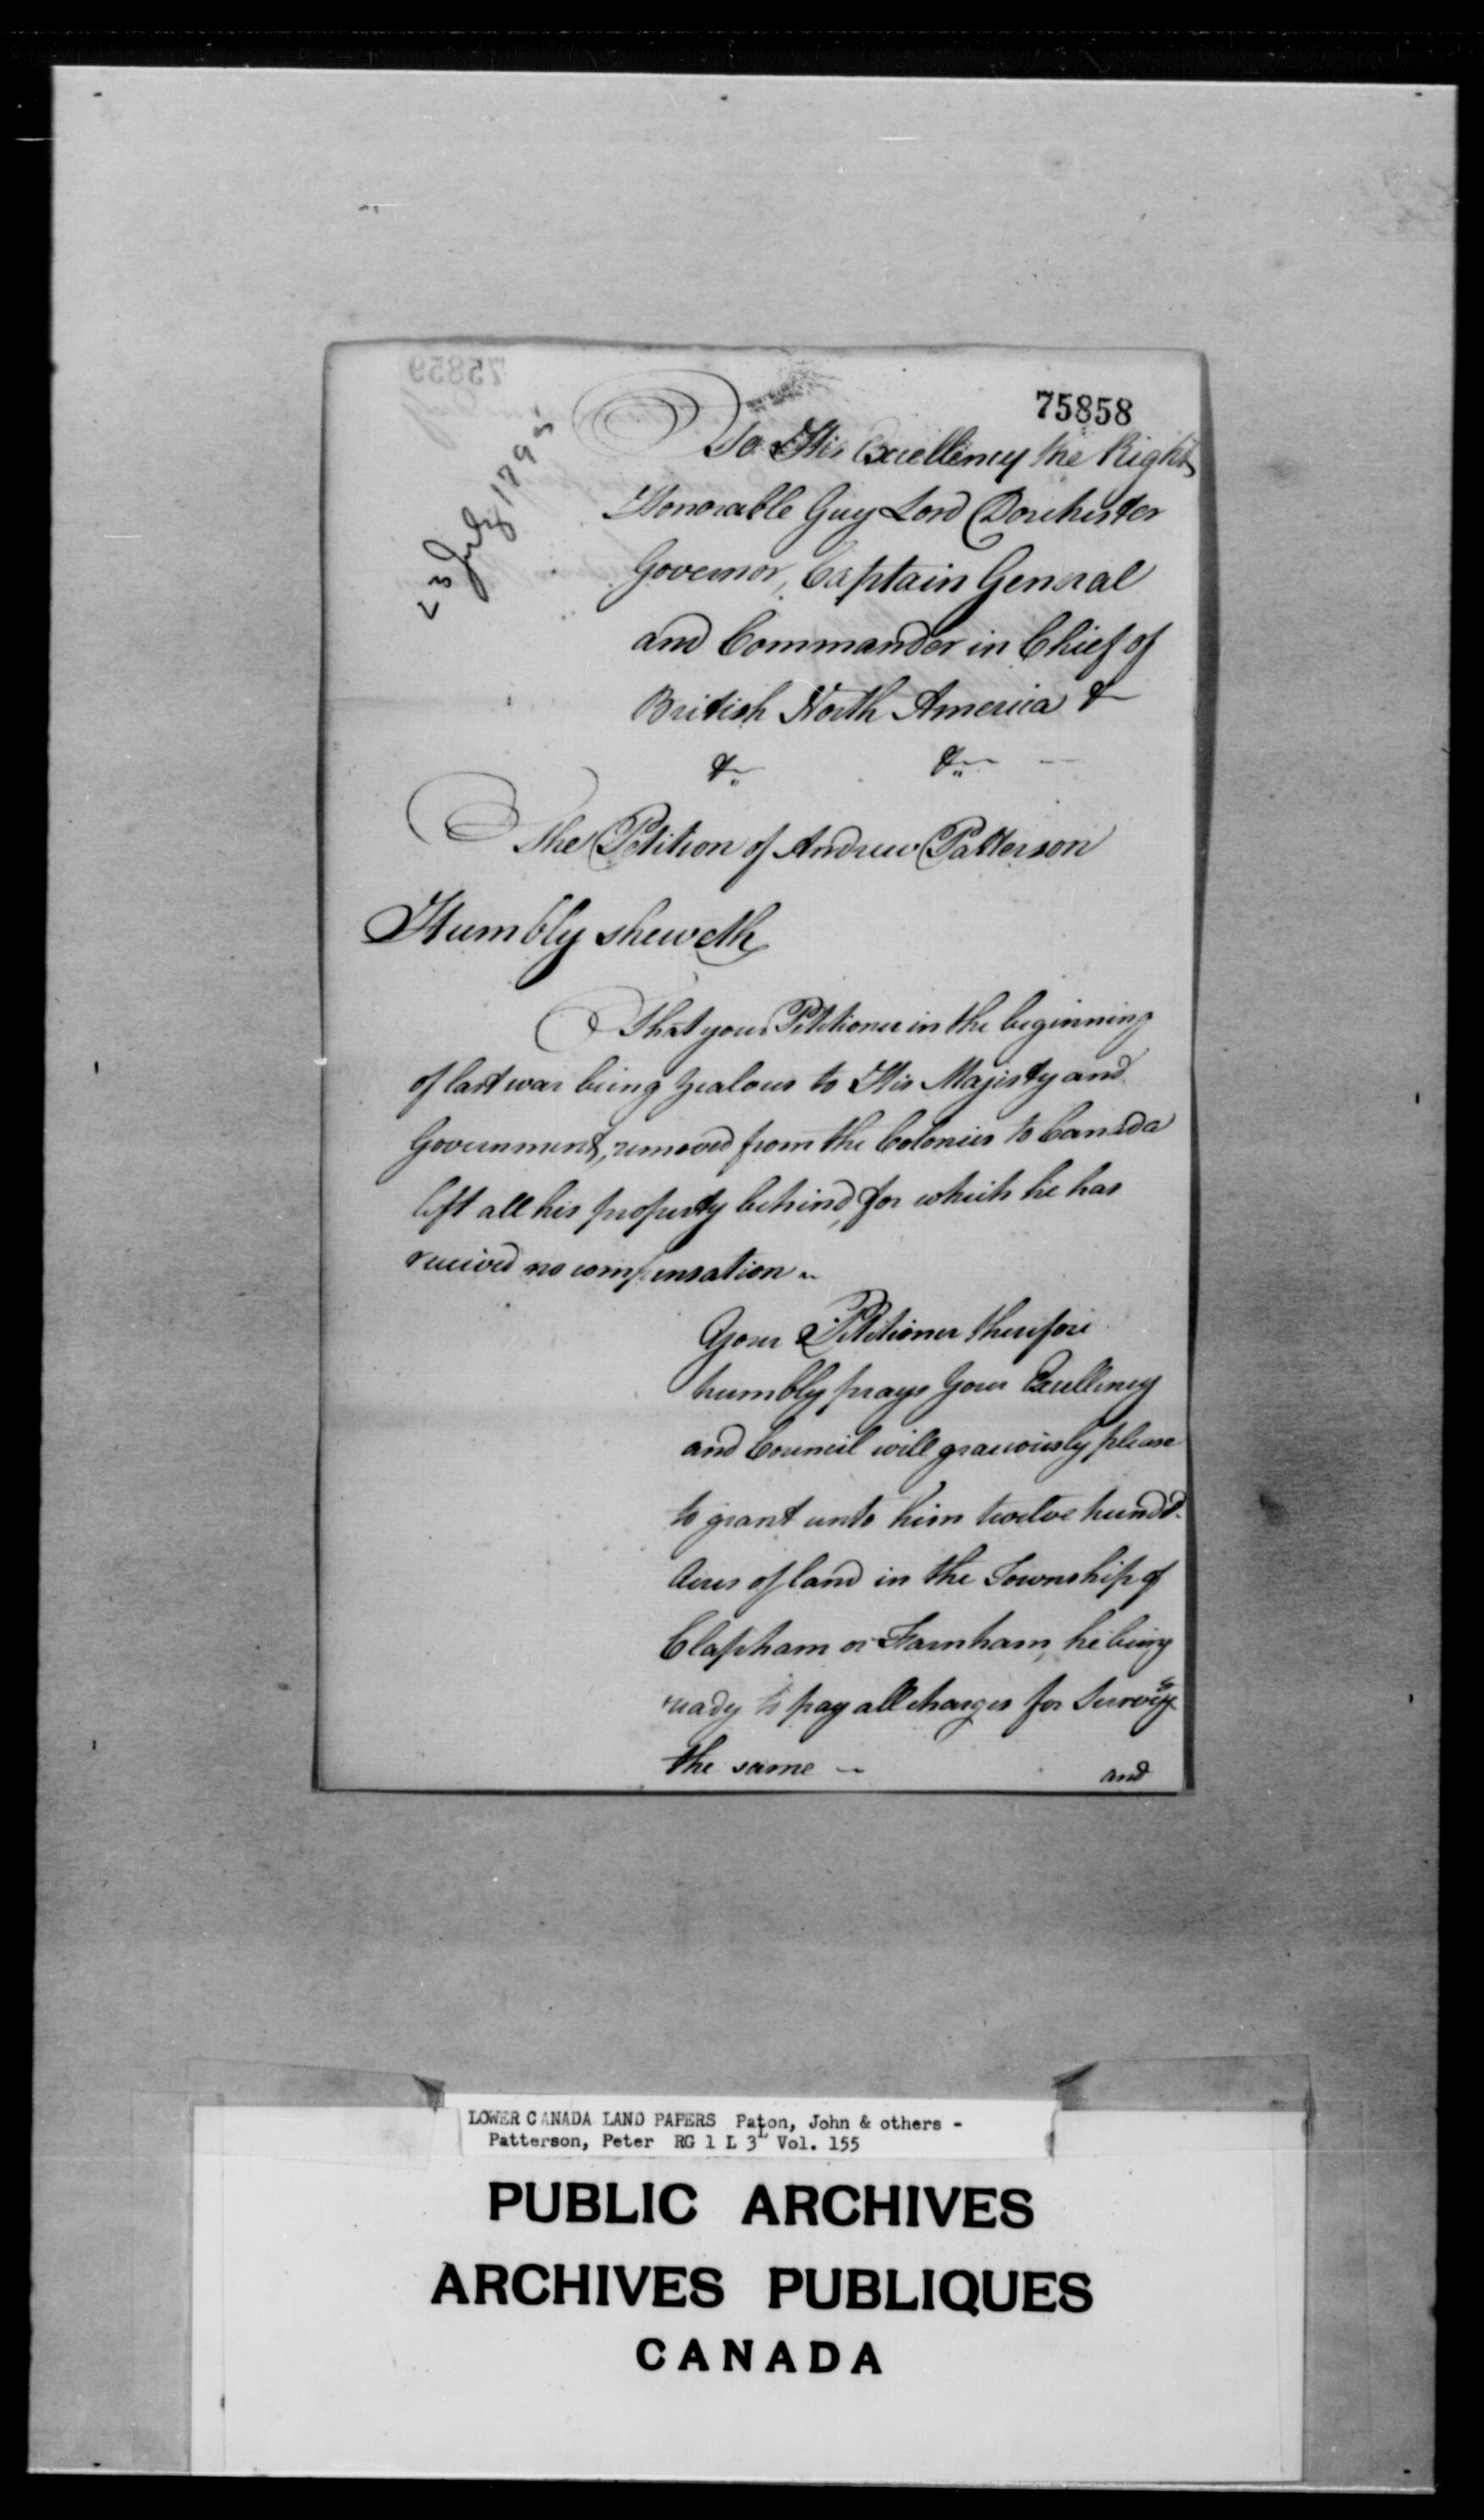 75858
75859
23 July 1795
To His Excellency the Right
Honorable Guy Lord Dorchester
Governor, Captain General
and Commander in Chief of
British North America &
& &
The Petition of Andrew Patterson
Humbly sheweth
That your Petitioner in the beginning
of last war being zealous to His Majesty and
Government, removed from the Colonies to Canada
left all his property behind, for which he has
received no compensation
Your Petitioner therefore
humbly prays Your Excellency
and Council will graciously please
to grant unto him twelve hundd.
Acres of land in the Township of
Clapham or Farnham, he being
ready to pay all charges for Surveyg
the same
and
LOWER CANADA LAND PAPERS Paton, John & others -
Patterson, Peter RG 1 L 3L Vol. 155
PUBLIC ARCHIVES
ARCHIVES PUBLIQUES
CANADA